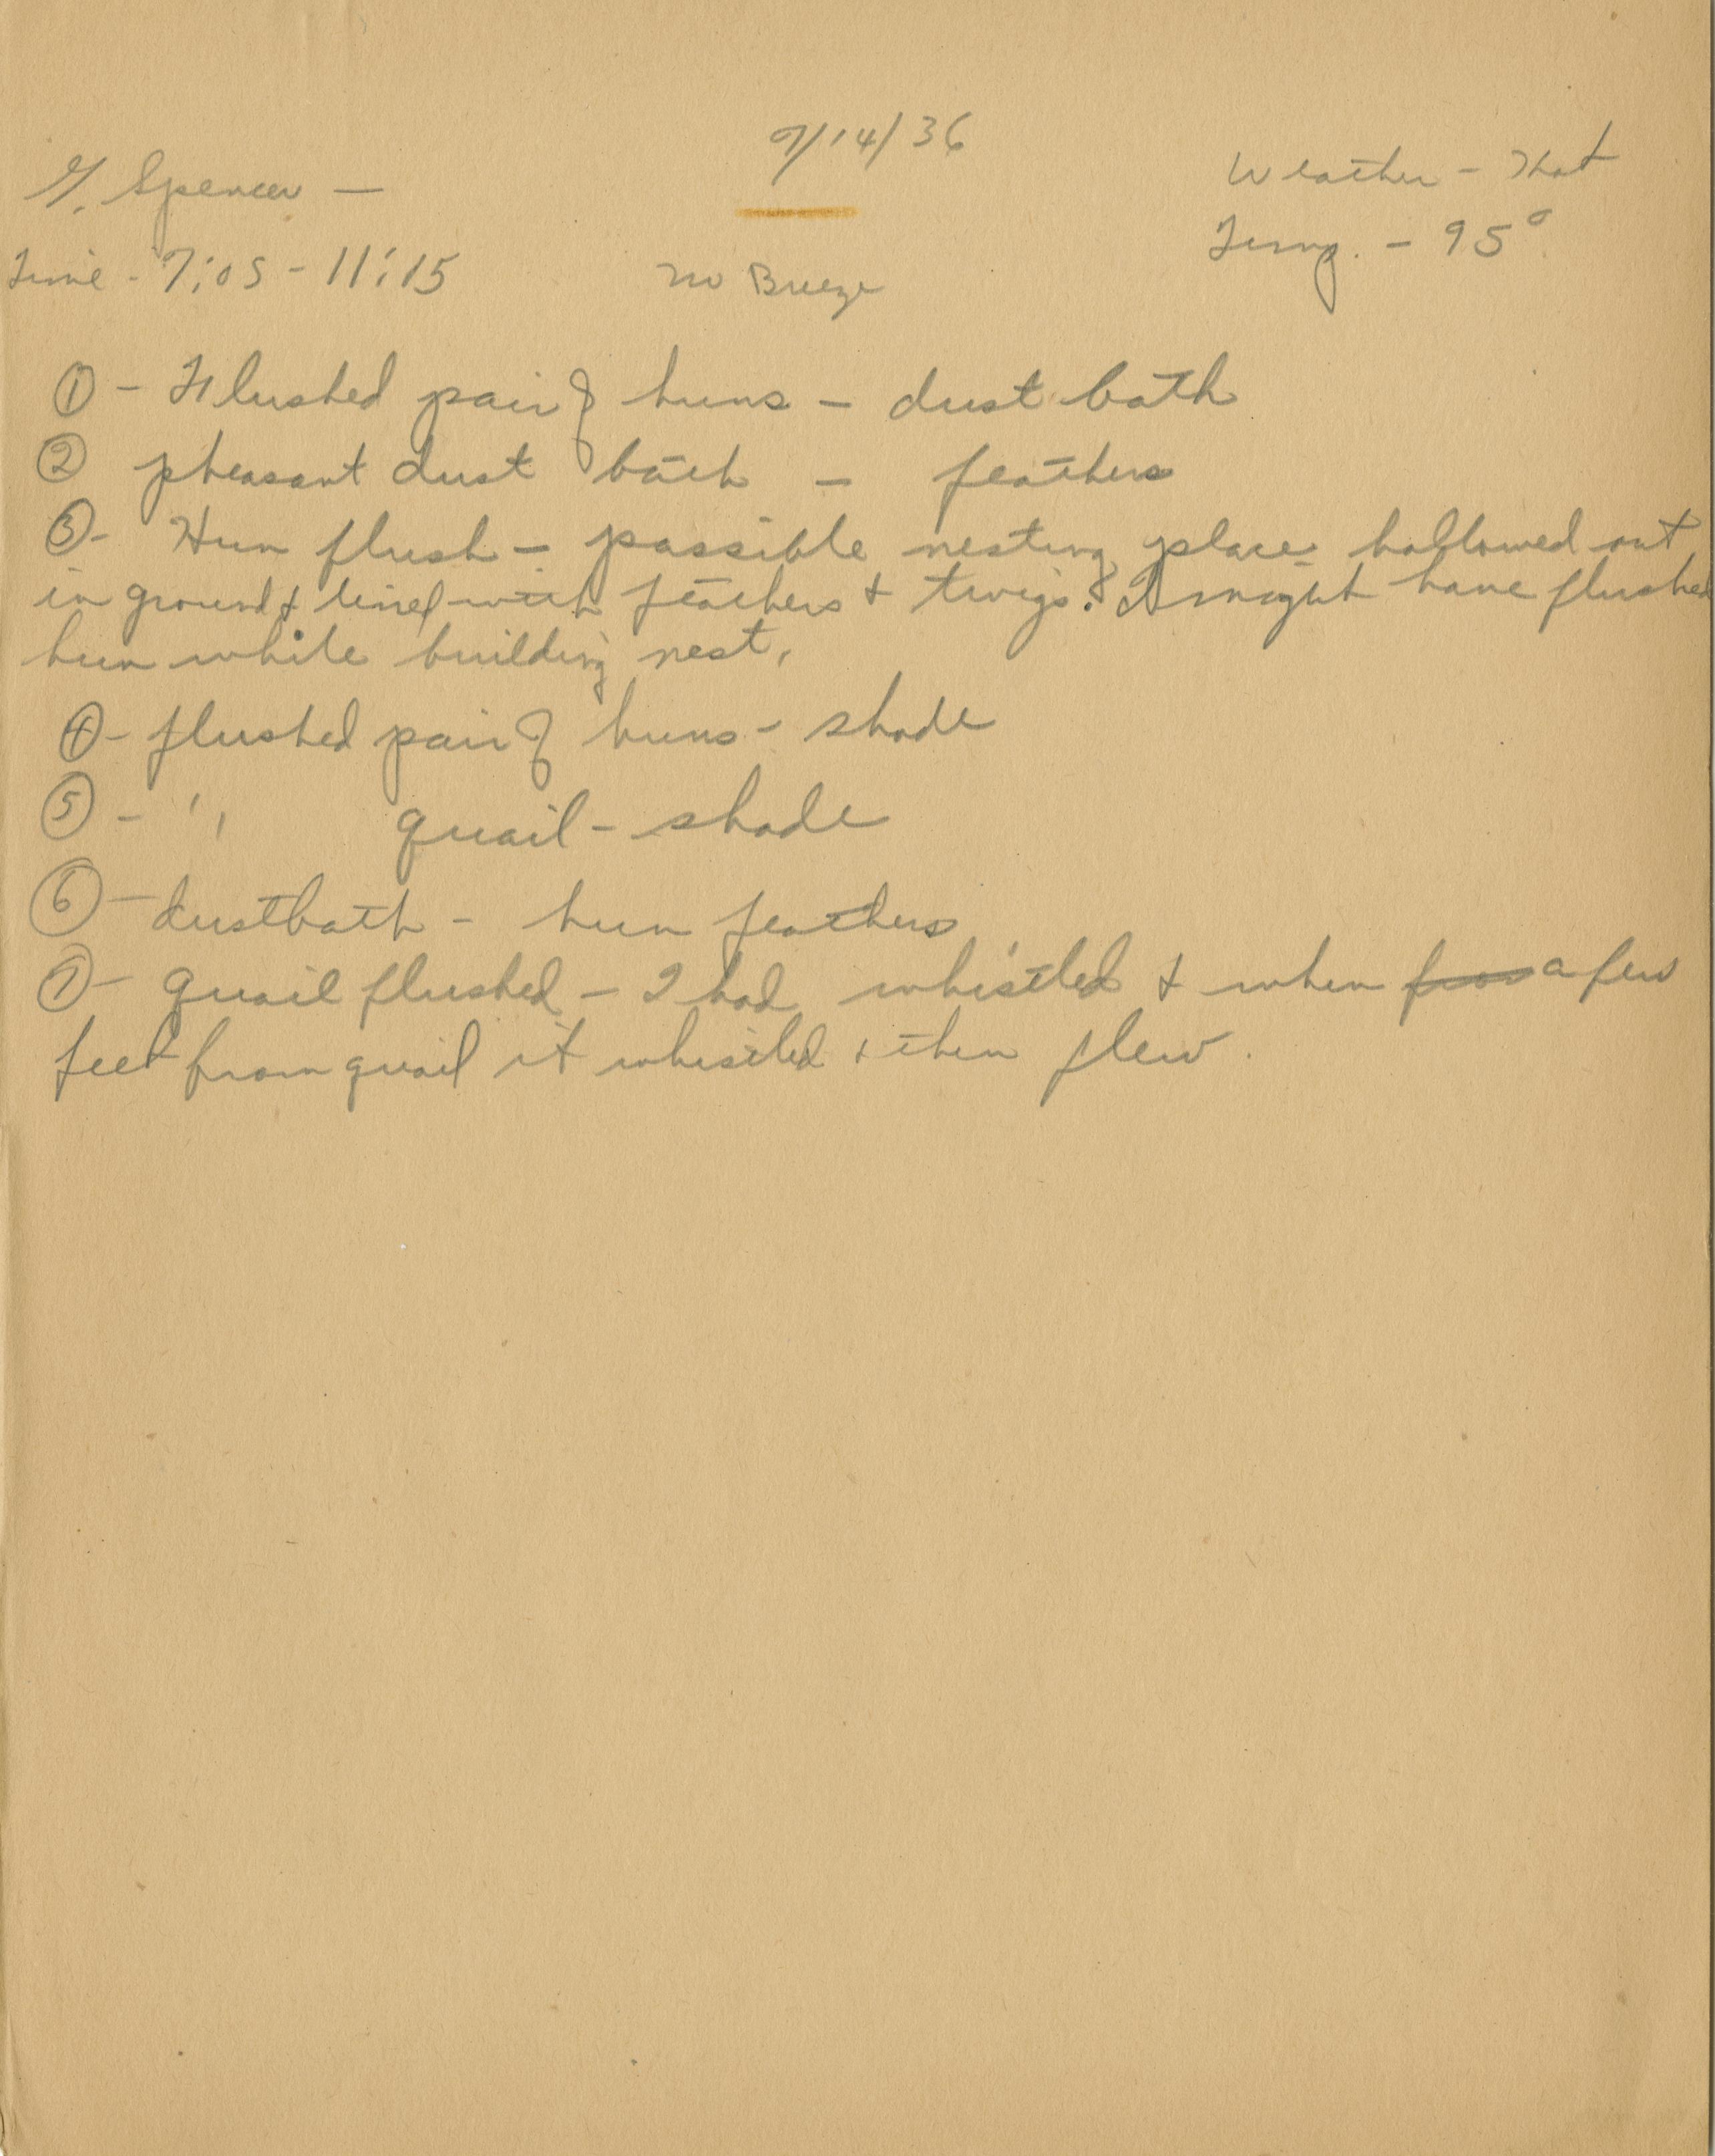 7/14/36
G. Spencer —
Weather - Hot
Time - 7:05 - 11:15
No Breeze
Temp. - 95°
① - Flushed pair of huns - dust bath
② pheasant dust bath - feathers
③ - Hun flush - possible nesting place hollowed out
in ground & lined with feathers & twigs. I might have flushed
hun while building nest.
④ - flushed pair of huns - shade
⑤ - " quail - shade
⑥ - dustbath - hun feathers
⑦ - quail flushed - I had whistled & when a few
feet from quail it whistled & then flew.